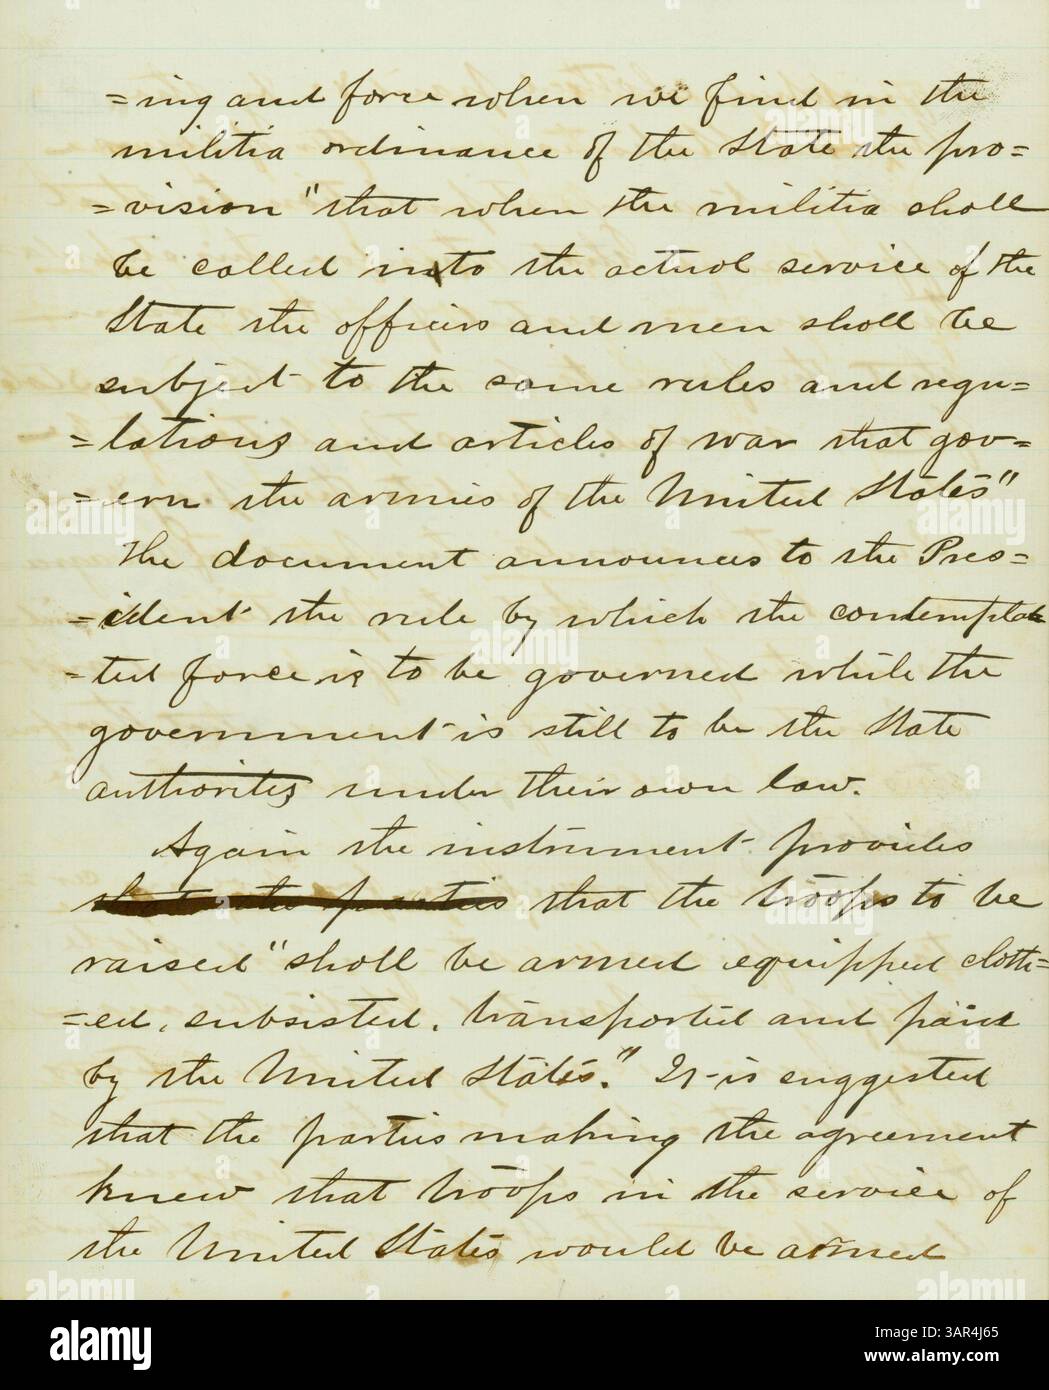 =ing and force when we find in the
militia ordinance of the State the pro=
=vision "that when the militia shall
be called into the actual service of the
State the officers and men shall be
subject to the same rules and regu=
=lations and articles of war that gov=
=ern the armies of the United States"
The document announces to the Pres=
=ident the rule by which the contempla
=ted force is to be governed while the
government is still to be the State
authorities under their own law.
Again the instrument provides
that the parties that the troops to be
raised "shall be armed equipped cloth=
=ed, subsisted, transported and paid
by the United States." It is suggested
that the parties making the agreement
knew that troops in the service of
the United States would be armed
alamy
Image ID: 3AR4J65
www.alamy.com